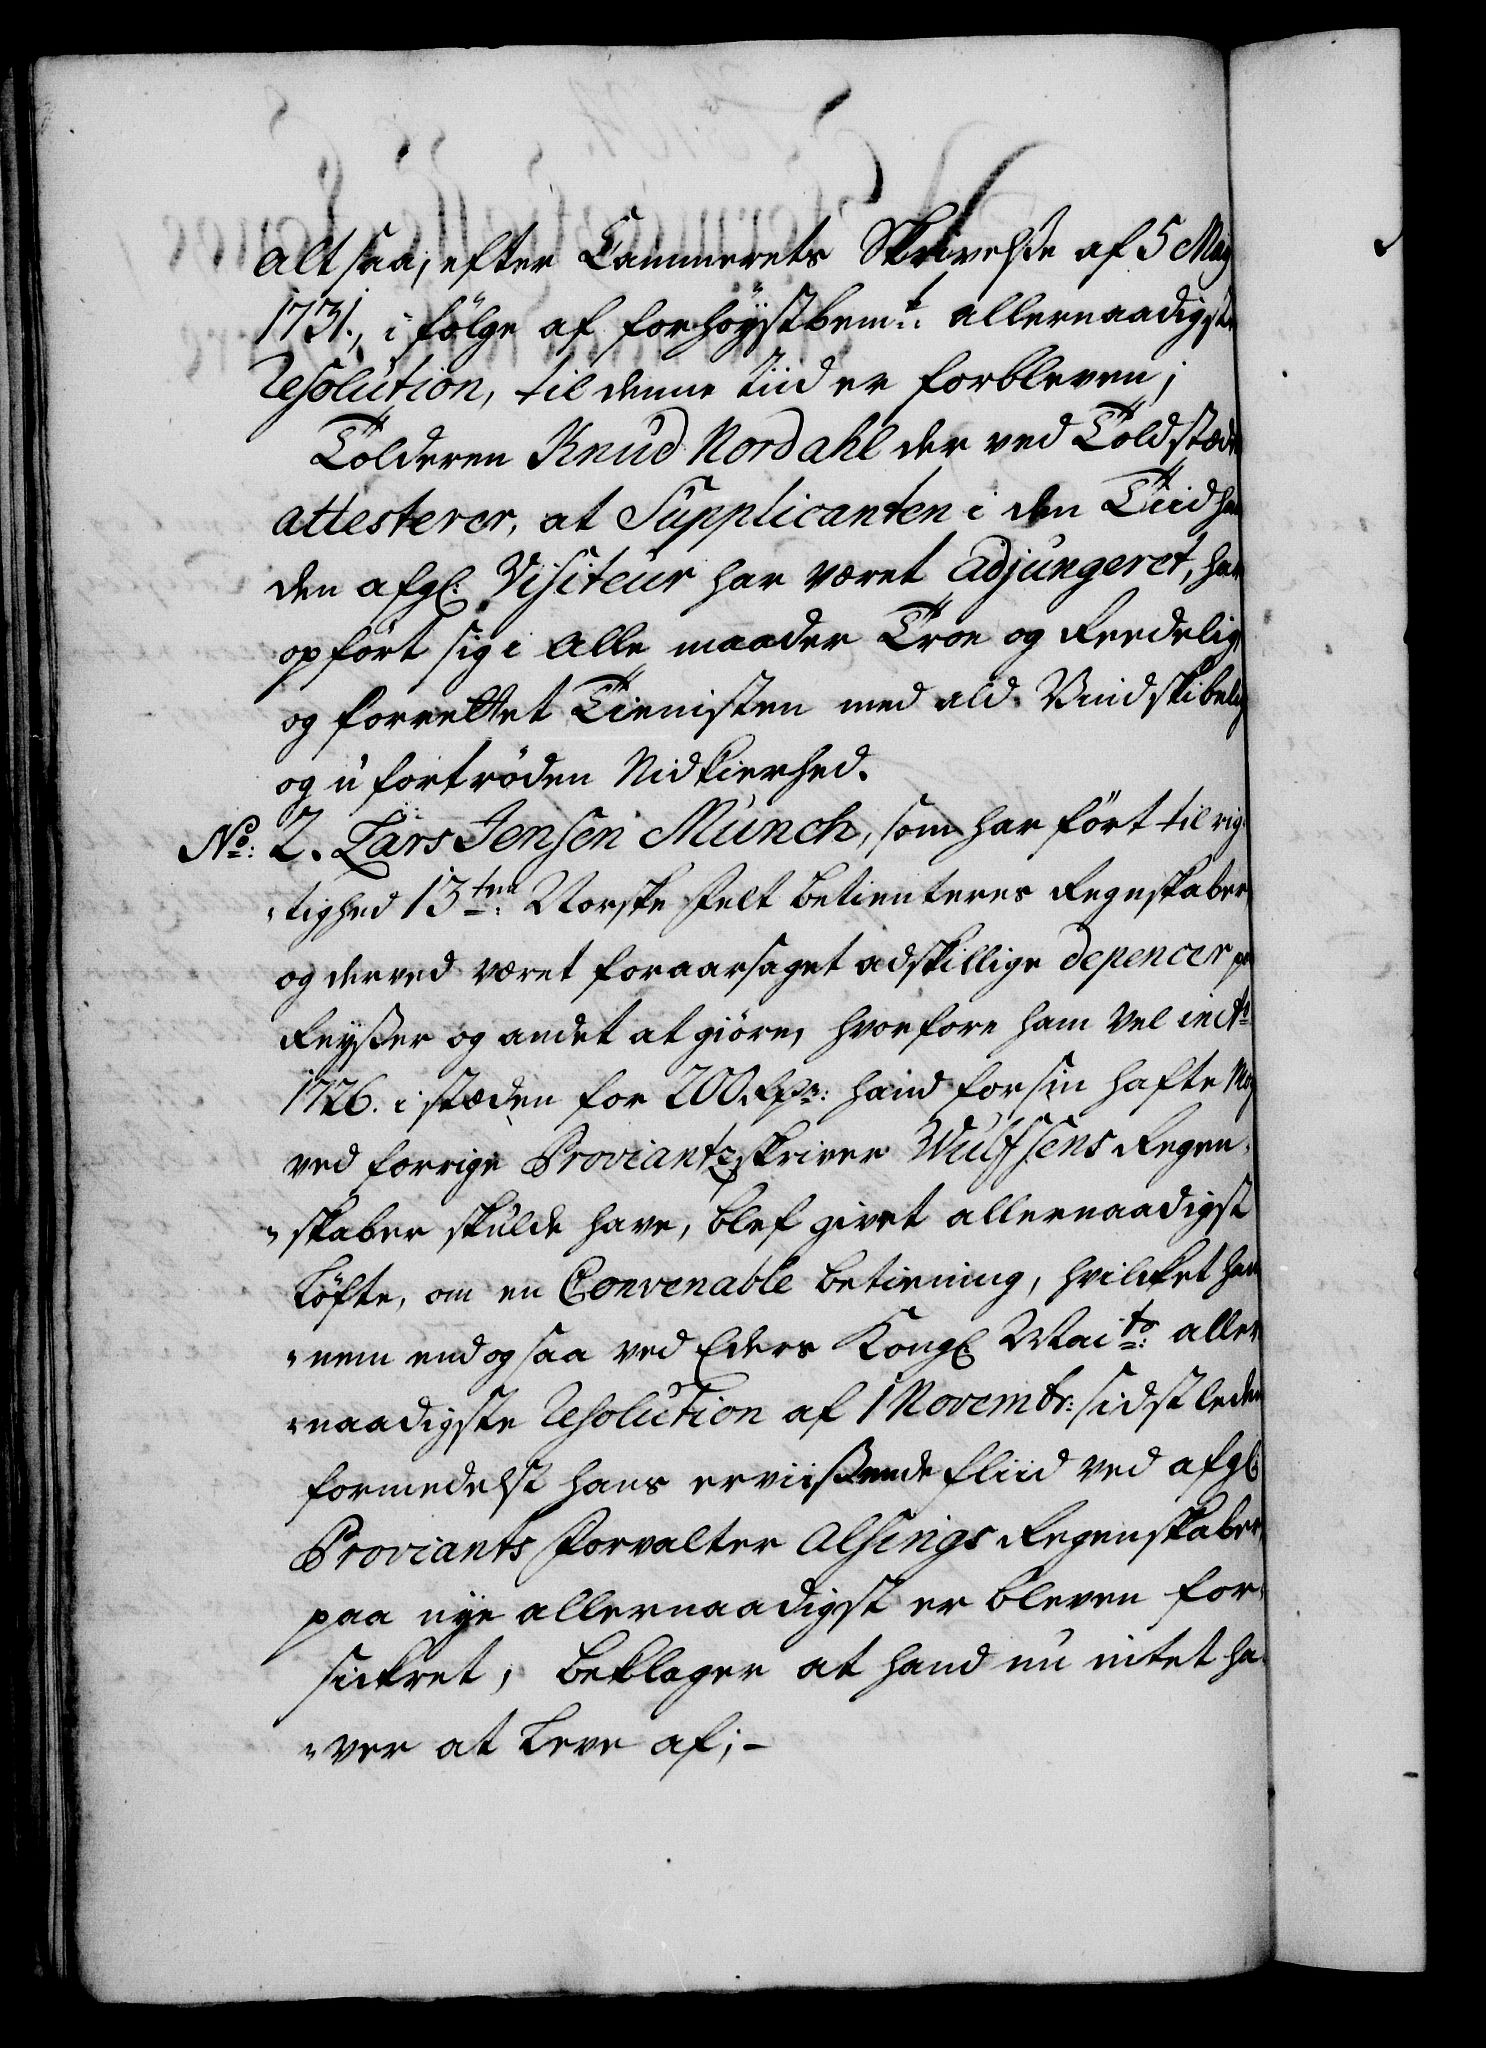 alt saa, efter Cammerets Skrivelse af 5 May
1731., i fölge af forhöystbem:te allernaadigste
Resolution, til denne tiid er forbleven;
Tolderen Knud Nordahl der ved Toldstædet
attesterer, at Supplicanten i den Tiid hand
den afg: Visiteur har været adjungeret, har
opfört sig i alle maader Troe og Reedelig,
og forrettet Tienisten med ald Vindskibelig
og ufortröden Nidkierhed.
No: 2. Lars Jensen Münch, som har fört til rig-
-tighed 13ten: Norske Felt Betienteres Regnskaber,
og derved været foraarsaget adskillige depencer paa
Reyßer og andet at giöre, hvorfore ham vel in Ao
1726. i stæden for 200 Rdr: hand for sin hafte Möy
ved forrige Proviantskriver Wulfsens Regen-
-skaber skulde have, blef givet allernaadigst
Löfte, om en Convenable betiening, hvilket han-
-nem endog saa ved Eders Kongl: Maits: aller-
-naadigste Resolution af 1 Novembr: sidstleden
formedelst hans erviißende fliid ved afg:
Proviants Forvalter Alsings Regenskaber,
paa nye allernaadigst er bleven for-
sickret, beklager at hand nu intet ha-
-ver at Leve af;-